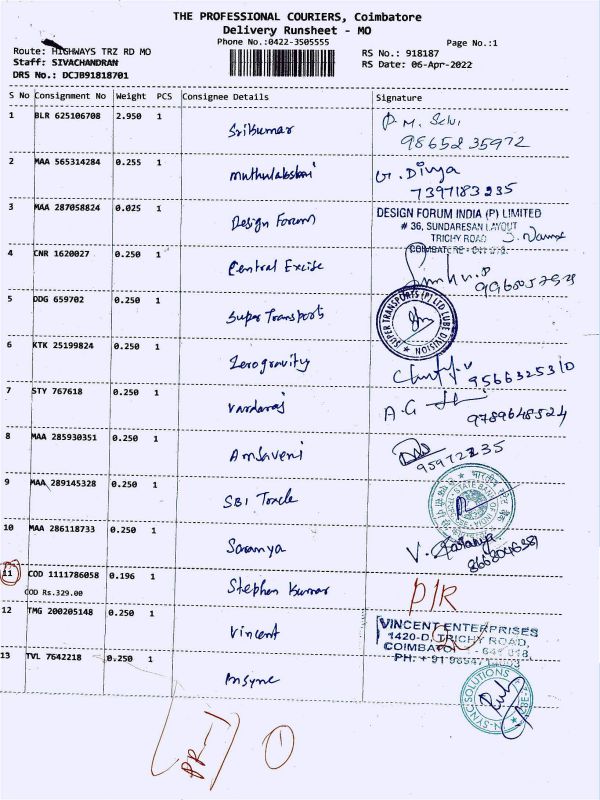 THE PROFESSIONAL COURIERS, Coimbatore
Delivery Runsheet - MO
Phone No.:0422-3505555
Page No.:1
Route: HIGHWAYS TRZ RD MO
RS No.: 918187
Staff: SIVACHANDRAN
RS Date: 06-Apr-2022
DRS No.: DCJB91818701
S No Consignment No Weight PCS Consignee Details Signature
1 BLR 625106708 2.950 1 Srikumar P.M. Selvi
9865235972
2 MAA 565314284 0.255 1 Muthulakshmi G. Divya
7397183235
3 MAA 287058824 0.025 1 Design Forum DESIGN FORUM INDIA (P) LIMITED
# 36, SUNDARESAN LAYOUT
TRICHY ROAD
4 CNR 1620027 0.250 1 Central Excise
5 DDG 659702 0.250 1 Super Transports SUPER TRANSPORTS (P) LTD LUBE DIVISION
6 KTK 25199824 0.250 1 Zerogravity
9566325310
7 STY 767618 0.250 1 Vardaraj A.G
9789648524
8 MAA 285930351 0.250 1 Amsaveni
9 MAA 289145328 0.250 1 SBI STATE BANK OF INDIA
10 MAA 286118733 0.250 1 Saranya V.
11 COD 1111786058 0.196 1 Stephen Kumar P/R
COD Rs.329.00
12 TMG 200205148 0.250 1 Vincent VINCENT ENTERPRISES
1420-D, TRICHY ROAD,
13 TVL 7642218 0.250 1 Insync N-SYNC SOLUTIONS
PR-1 1